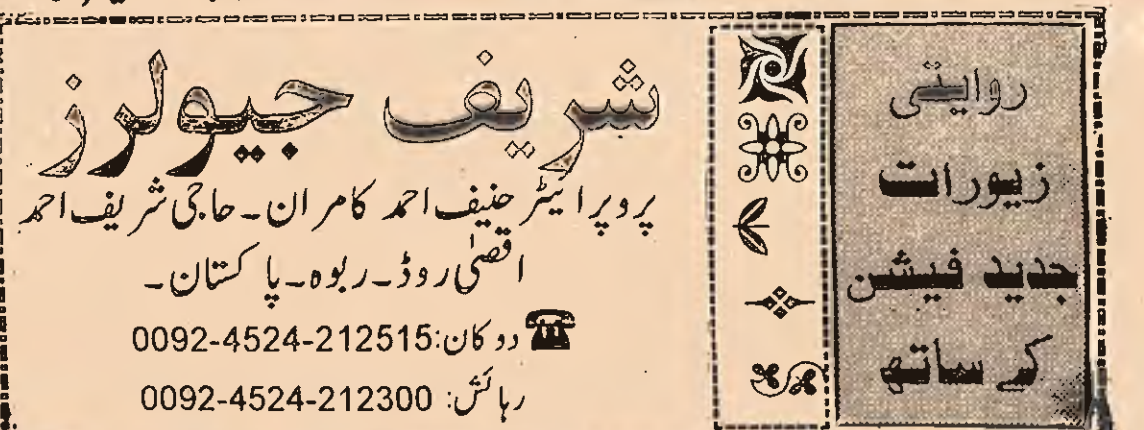 روایتی
زیورات
جدید فیشن
کے ساتھ
شریف جیولرز
پروپرائیٹر حنیف احمد کامران۔ حاجی شریف احمد
اقصیٰ روڈ۔ ربوہ۔ پاکستان۔
دوکان: 0092-4524-212515
رہائش: 0092-4524-212300